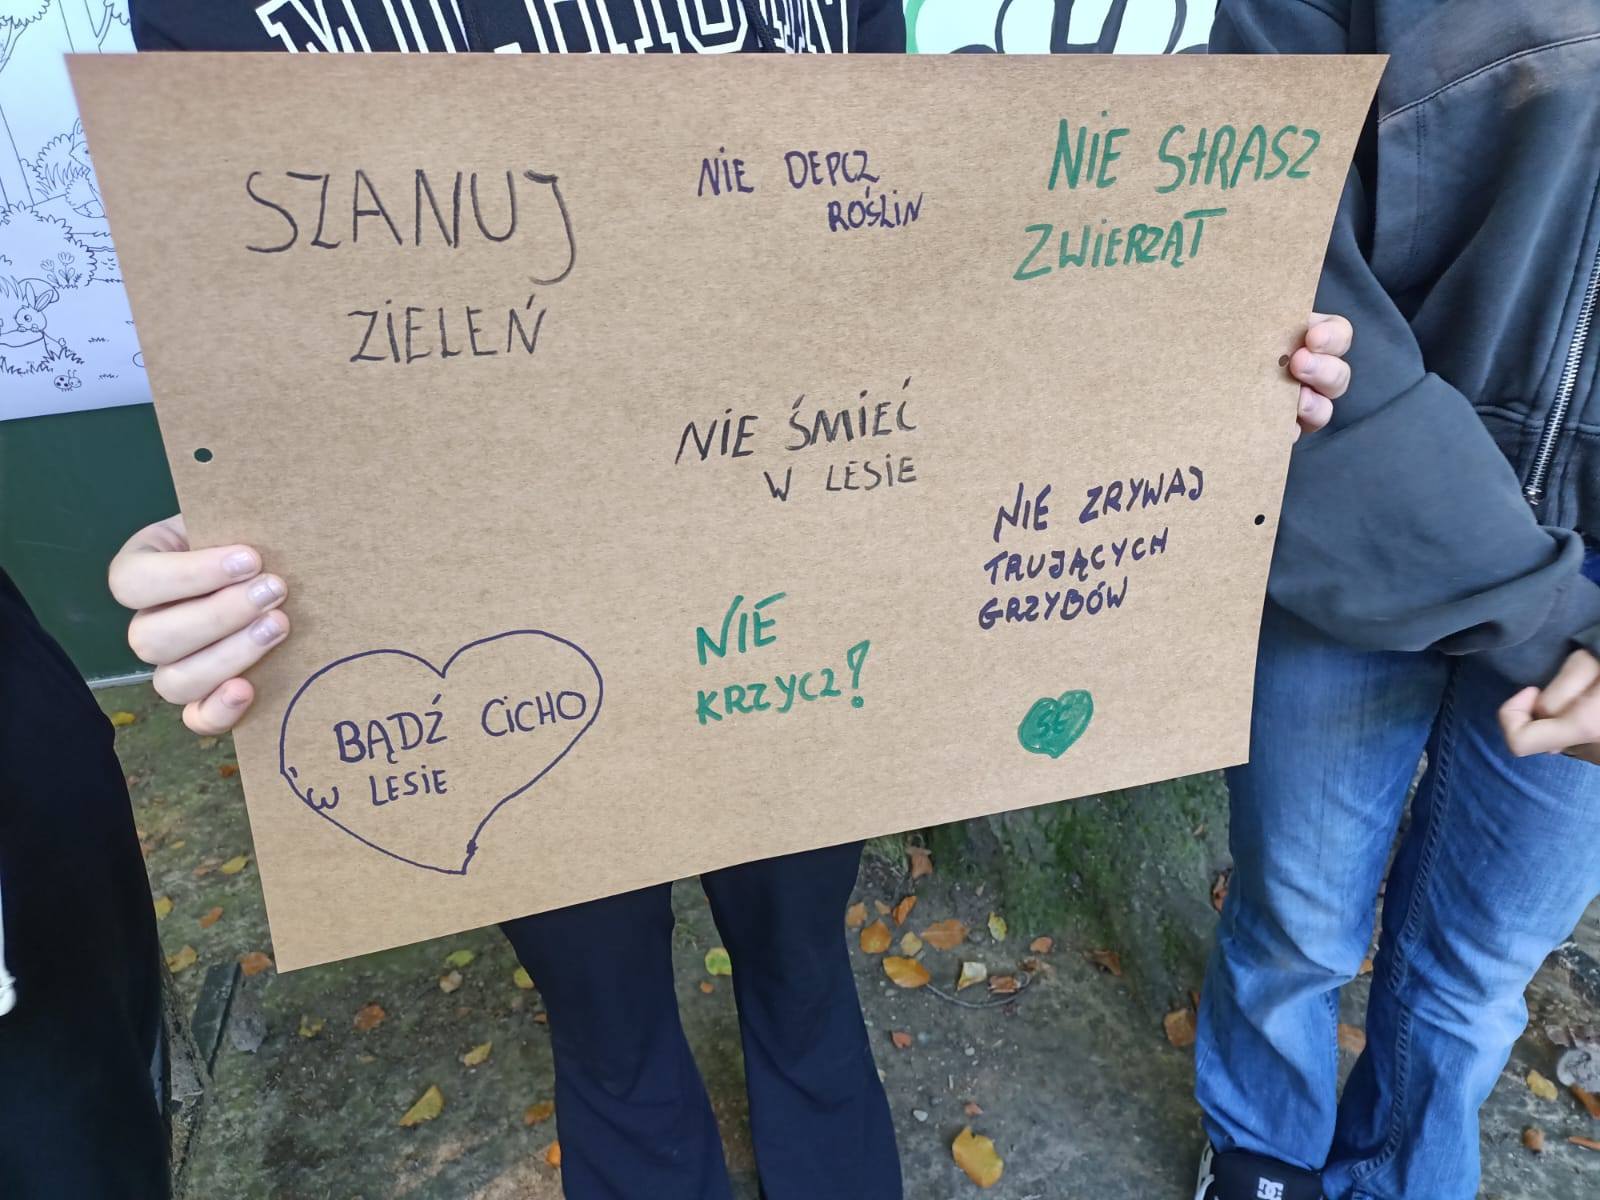 SZANUJ
ZIELEŃ
NIE DEPCZ
ROŚLIN
NIE STRASZ
ZWIERZĄT
NIE ŚMIEĆ
W LESIE
NIE ZRYWAJ
TRUJĄCYCH
GRZYBÓW
NIE
KRZYCZ!
BĄDŹ CICHO
W LESIE